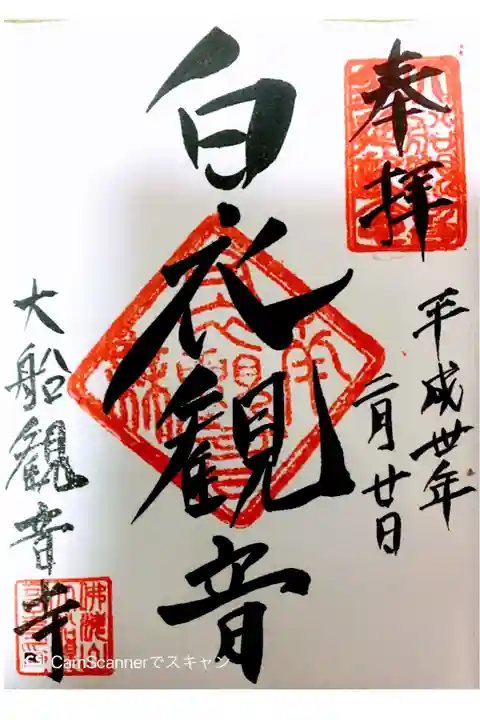 奉拝
平成丗年
二月廿日
白衣観音
大船観音寺
CamScannerでスキャン